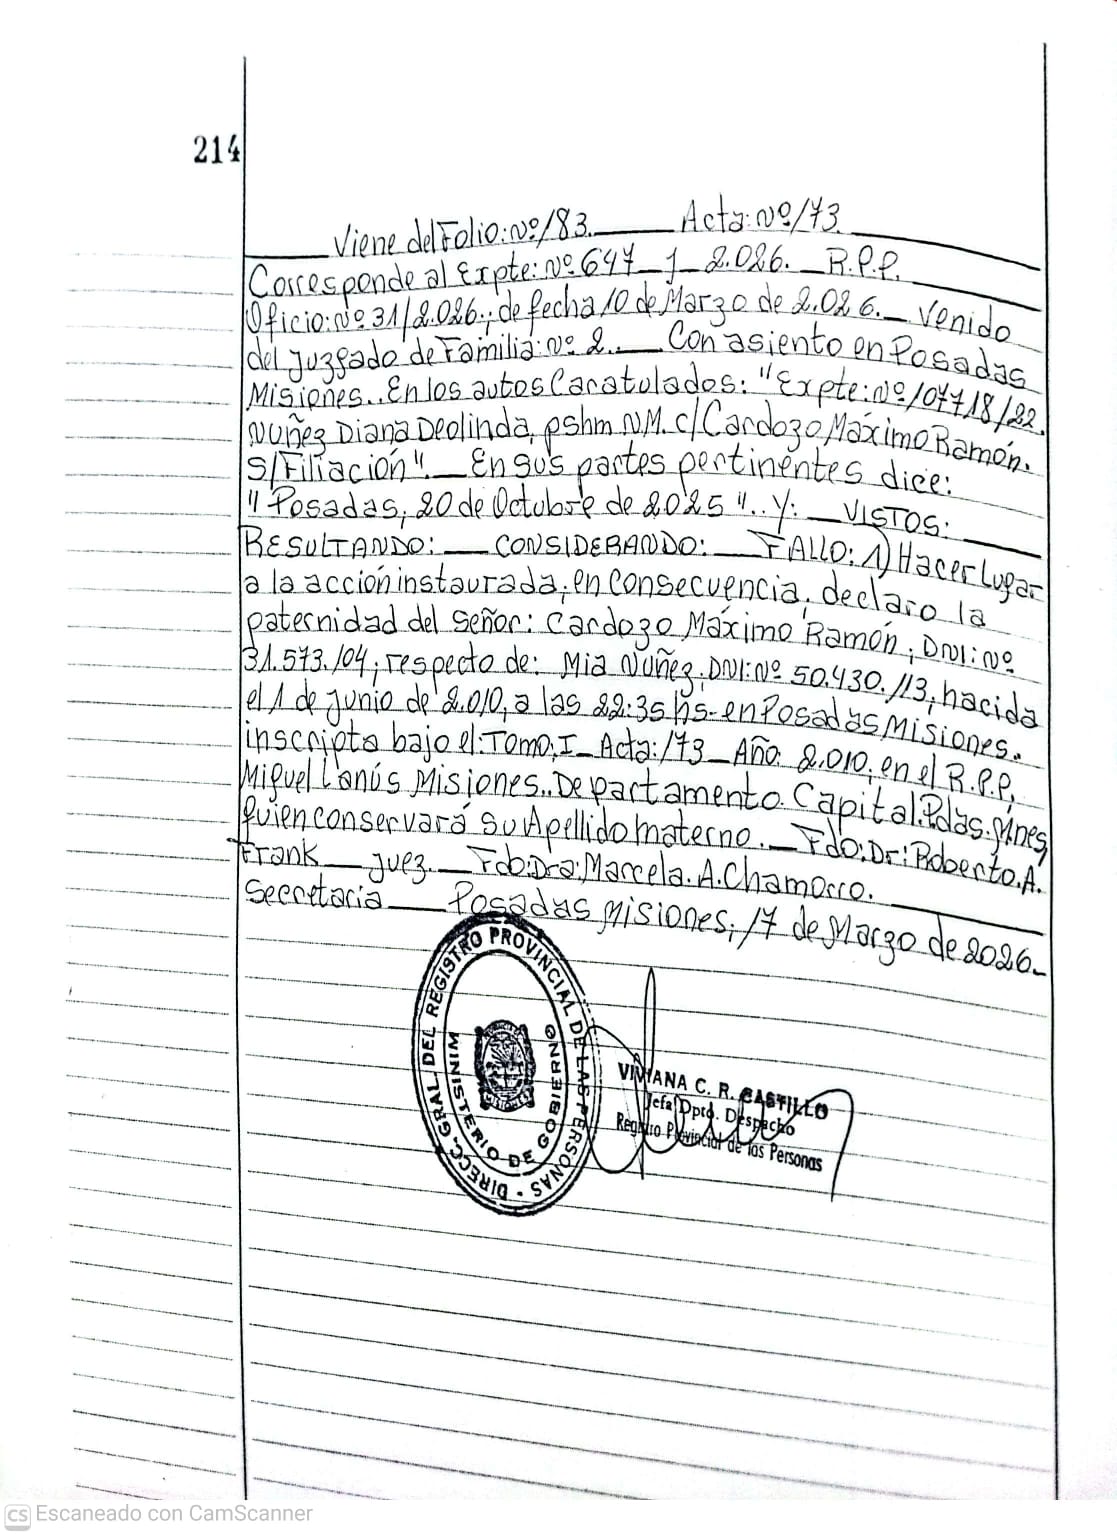 214
Viene del Folio: Nº 183. Acta: Nº 173.
Corresponde al Expte: Nº 647_J_2.026. R.P.P.
Oficio: Nº 31/2.026; de fecha 10 de Marzo de 2.026. Venido
del Juzgado de Familia: Nº 2. Con asiento en Posadas
Misiones.. En los autos Caratulados: "Expte: Nº 107718/22.
Nuñez Diana Deolinda, pshm N.M. c/ Cardozo Máximo Ramón.
S/Filiación". En sus partes pertinentes dice:
"Posadas, 20 de Octubre de 2025".. Y: VISTOS:
RESULTANDO: CONSIDERANDO: FALLO: 1) Hacer Lugar
a la acción instaurada; en consecuencia, declaro la
paternidad del Señor: Cardozo Máximo Ramón, DNI: Nº
31.573.104; respecto de: Mia Nuñez. DNI: Nº 50.430.113; nacida
el 1 de junio de 2.010, a las 22:35 hs- en Posadas Misiones.
inscripta bajo el: Tomo: I_ Acta: 173_ Año: 2.010; en el R.P.P.
Miguel Lanús Misiones.. Departamento. Capital. Pdas. Mnes,
Quien conservará su Apellido materno. Fdo: Dr: Roberto. A.
Frank juez. Fdo: Dra: Marcela. A. Chamorro.
Secretaria Posadas Misiones; 17 de Marzo de 2026.
DIRECC. GRAL. DEL REGISTRO PROVINCIAL DE LAS PERSONAS
MINISTERIO DE GOBIERNO
MISIONES
VIVIANA C. R. CASTILLO
Jefa Dpto. Despacho
Registro Provincial de las Personas
CS Escaneado con CamScanner